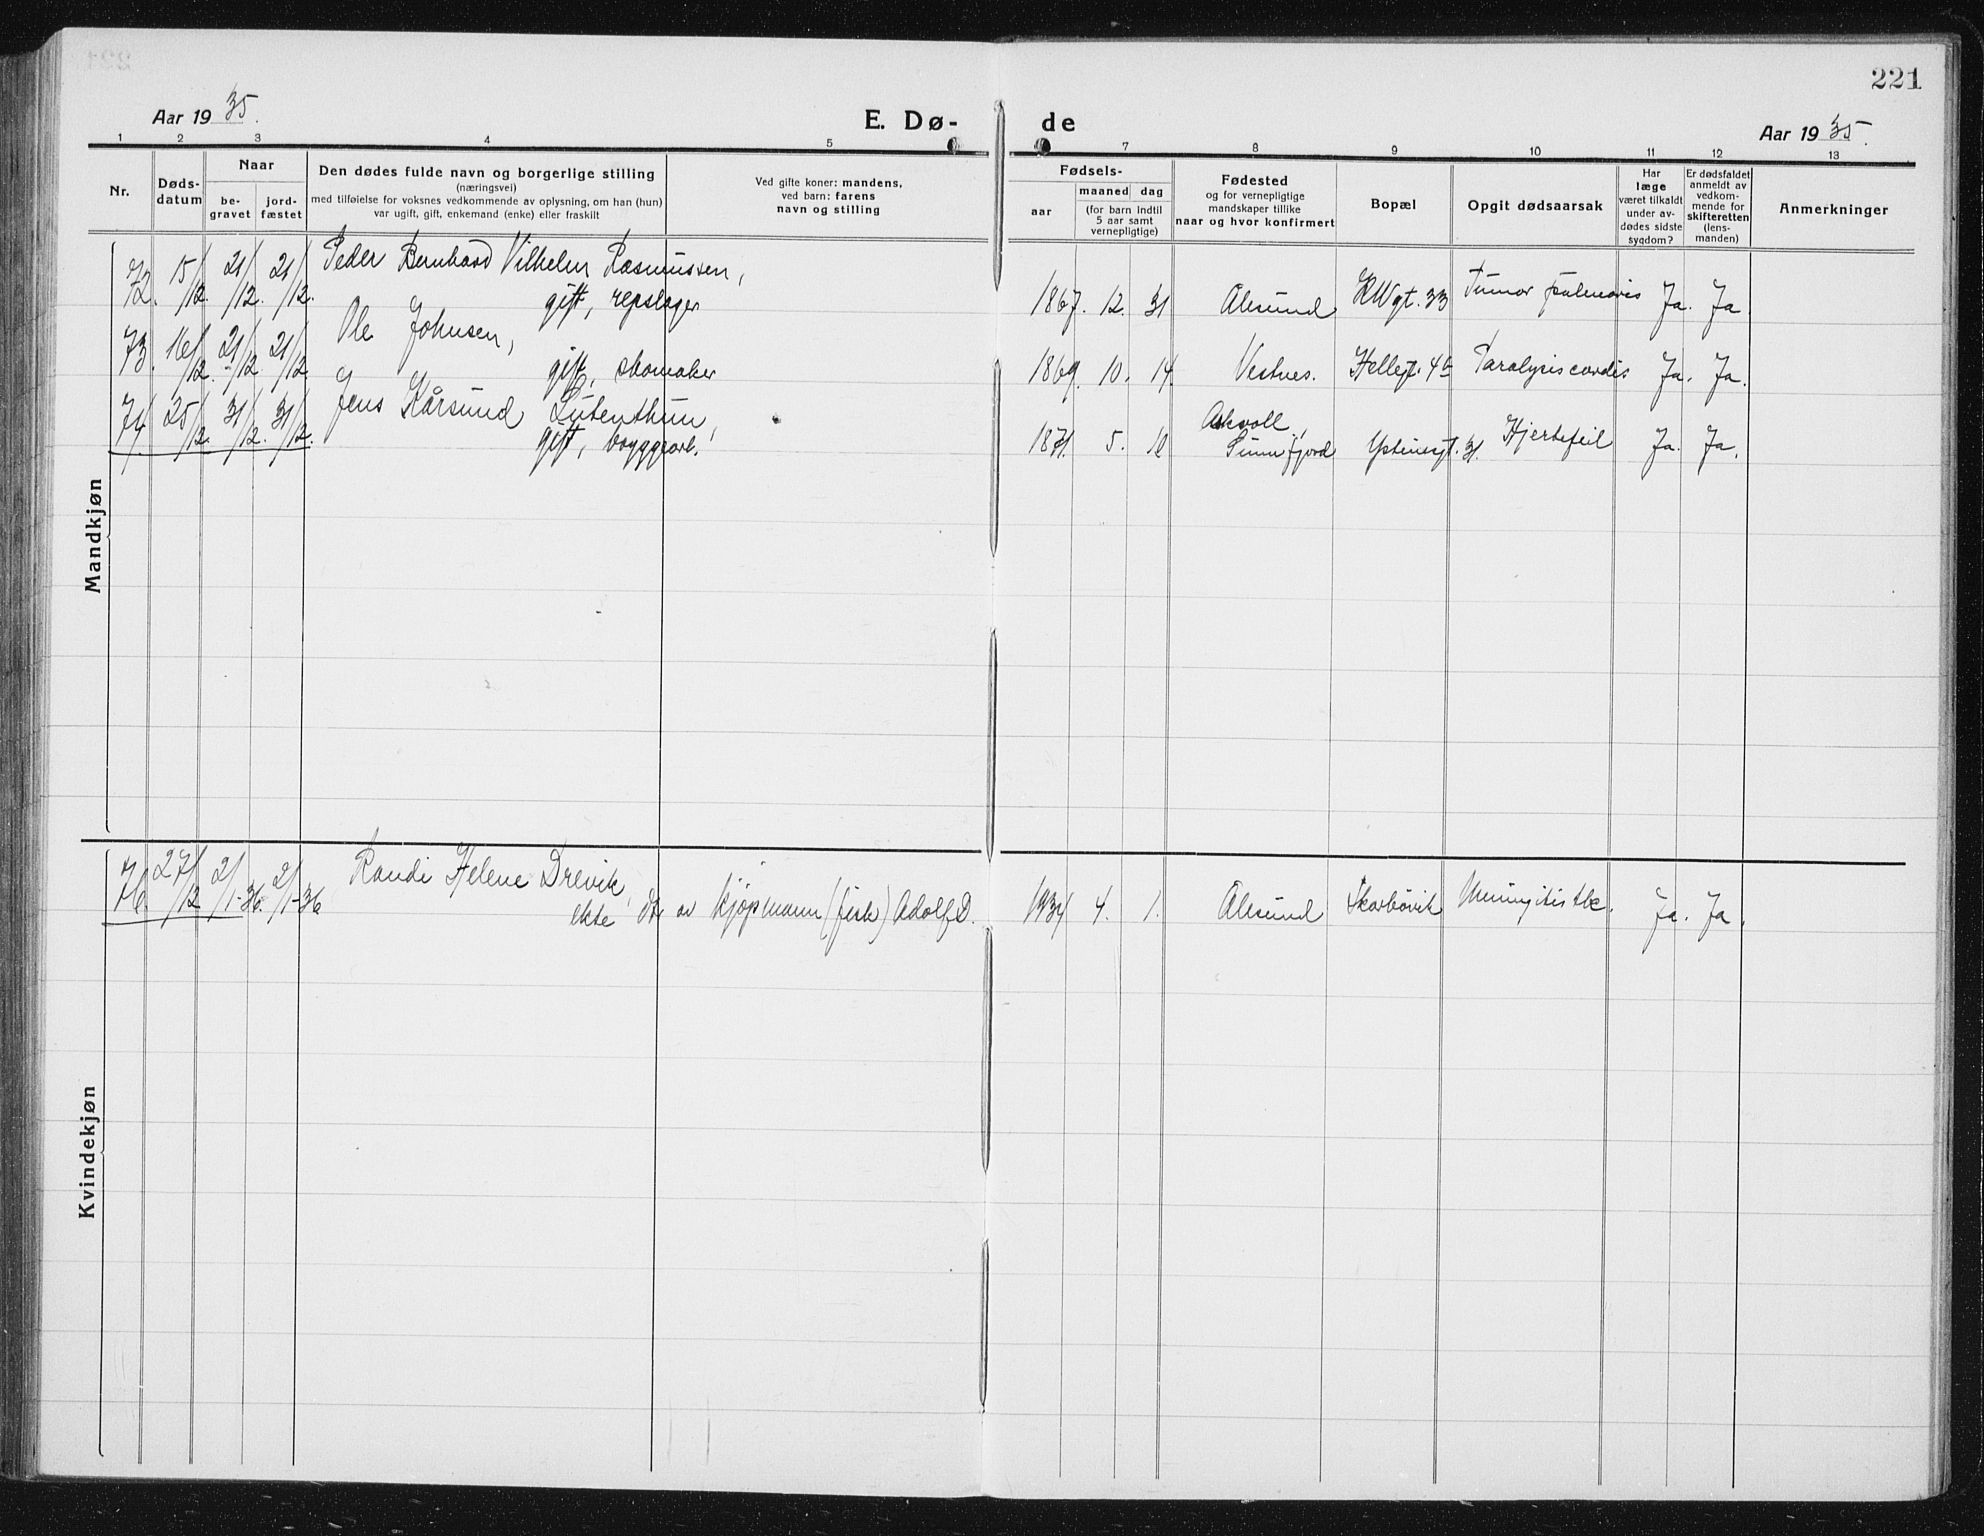 221
Aar 1935.
E. Dø-
de
Aar 1935.
1 2 3 4 5 7 8 9 10 11 12 13
Nr.
Døds-
datum
Naar
be-
gravet
jord-
fæstet
Den dødes fulde navn og borgerlige stilling
(næringsvei)
med tilføielse for voksnes vedkommende av oplysning, om han (hun)
var ugift, gift, enkemand (enke) eller fraskilt
Ved gifte koner: mandens,
ved barn: farens
navn og stilling
Fødsels-
aar
maaned dag
(for barn indtil
5 aar samt
vernepligtige)
Fødested
og for vernepligtige
mandskaper tillike
naar og hvor konfirmert
Bopæl
Opgit dødsaarsak
Har
læge
været tilkaldt
under av-
dødes sidste
sygdom?
Er dødsfaldet
anmeldt av
vedkom-
mende for
skifteretten
(lens-
manden)
Anmerkninger
Mandkjøn
72. 15/12. 21/12. 21/12. Peder Bernhard Vilhelm Rasmussen,
gift, repslager 1867. 12. 31 Ålesund KWgt. 33 Tumor pulmonis Ja. Ja.
73. 16/12. 21/12 21/12 Ole Johnsen,
gift, skomaker 1869. 10. 14. Vestnes. Hellegt. 4b Paralysis cordis Ja. Ja.
74 25/12. 31/12. 31/12. Jens Kårsund
gift, byggearb. 1871. 5. Askvoll,
Sunnfjord 31. Hjertefeil Ja. Ja.
Kvindekjøn
76 27/12 2/1-36. 2/1-36 Randi Helene Drevik,
ekte dtr av kjøpmann (fisk) Adolf D. 1934 4. 1. Ålesund Skarbøvik Meningitis tbc. Ja. Ja.